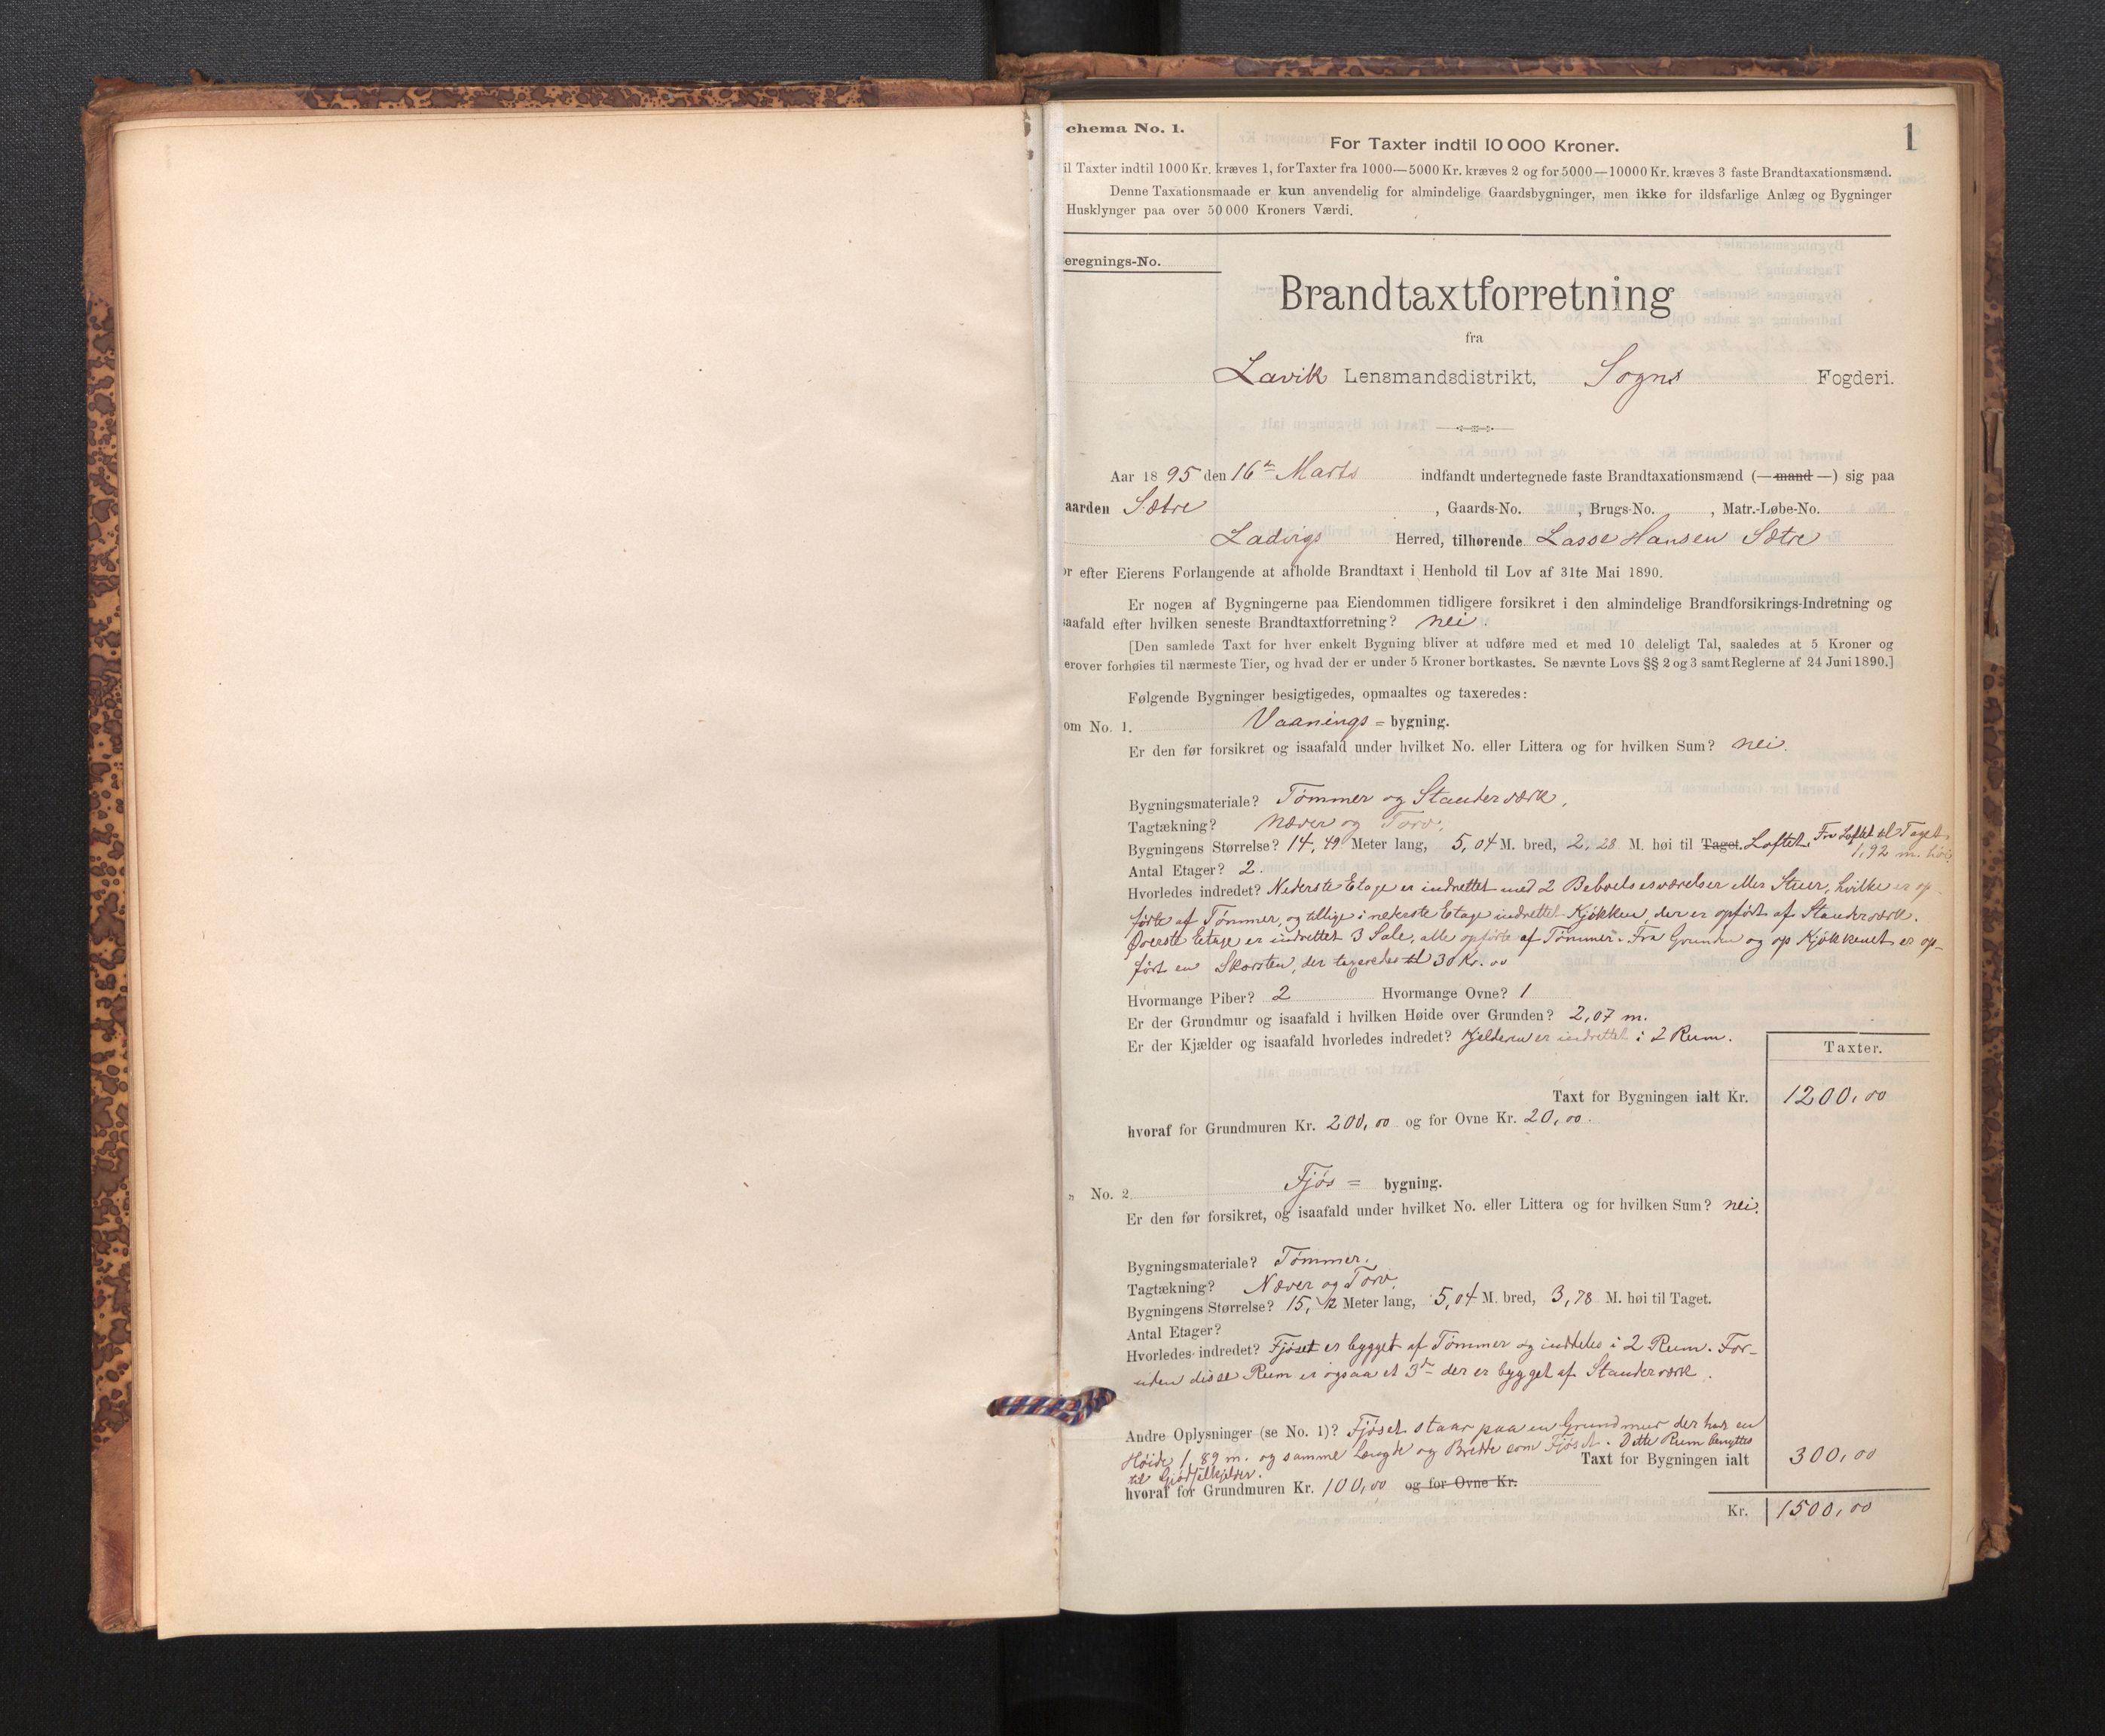 chema No. 1.
1
For Taxter indtil 10 000 Kroner.
il Taxter indtil 1000 Kr. kræves 1, for Taxter fra 1000—5000 Kr. kræves 2 og for 5000—10000 Kr. kræves 3 faste Brandtaxationsmænd.
Denne Taxationsmaade er kun anvendelig for almindelige Gaardsbygninger, men ikke for ildsfarlige Anlæg og Bygninger
Husklynger paa over 50 000 Kroners Værdi.
eregnings-No.
Brandtaxtforretning
fra
Lavik Lensmandsdistrikt, Sogns Fogderi.
Aar 1895 den 16de Marts indfandt undertegnede faste Brandtaxationsmænd (— mand —) sig paa
aarden Sætre , Gaards-No. , Brugs-No. , Matr.-Løbe-No.
Ladvigs Herred, tilhørende Lasse Hansen Sætre
or efter Eierens Forlangende at afholde Brandtaxt i Henhold til Lov af 31te Mai 1890.
Er nogen af Bygningerne paa Eiendommen tidligere forsikret i den almindelige Brandforsikrings-Indretning og
saafald efter hvilken seneste Brandtaxtforretning? nei.
[Den samlede Taxt for hver enkelt Bygning bliver at udføre med et med 10 deleligt Tal, saaledes at 5 Kroner og
erover forhøies til nærmeste Tier, og hvad der er under 5 Kroner bortkastes. Se nævnte Lovs §§ 2 og 3 samt Reglerne af 24 Juni 1890.]
Følgende Bygninger besigtigedes, opmaaltes og taxeredes:
om No. 1. Vaanings = bygning.
Er den før forsikret og isaafald under hvilket No. eller Littera og for hvilken Sum? nei.
Bygningsmateriale? Tømmer og Standerværk,
Tagtækning? Næver og Torv,
Bygningens Størrelse? 14,49 Meter lang, 5,04 M. bred, 2,28 M. høi til Taget. Loftet. Fra Loftet til Taget
1,92 m. høi.
Antal Etager? 2.
Hvorledes indredet? Nederste Etage er indrettet med 2 Beboelsesværelser eller Stuer, hvilke er op-
førte af Tømmer, og tillige i nederste Etage indrettet Kjøkken, der er opført af Standerværk.
Øverste Etage er indrettet 3 Sale, alle opførte af Tømmer. Fra Grunden og op Kjøkkenet er op-
ført en Skorsten, der taxeredes til 30 Kr. 00
Hvormange Piber? 2 Hvormange Ovne? 1
Er der Grundmur og isaafald i hvilken Høide over Grunden? 2,07 m.
Er der Kjælder og isaafald hvorledes indredet? Kjelderen er indrettet i 2 Rum.
Taxter.
Taxt for Bygningen ialt Kr. 1200,00
hvoraf for Grundmuren Kr. 200,00 og for Ovne Kr. 20,00.
„ No. 2 Fjøs = bygning.
Er den før forsikret, og isaafald under hvilket No. eller Littera og for hvilken Sum? nei.
Bygningsmateriale? Tømmer.
Tagtækning? Næver og Torv.
Bygningens Størrelse? 15,12 Meter lang, 5,04 M. bred, 3,78 M. høi til Taget.
Antal Etager?
Hvorledes indredet? Fjøset er bygget af Tømmer og inddeles i 2 Rum. For-
uden disse Rum er ogsaa et 3de der er bygget af Standerværk.
Andre Oplysninger (se No. 1)? Fjøset staar paa en Grundmur der har en
Høide 1,89 m. og samme Længde og Bredde som Fjøset. Dette Rum benyttes
til Gjødselkjelder.
Taxt for Bygningen ialt 300,00
hvoraf for Grundmuren Kr. 100,00 og for Ovne Kr.
Kr. 1500,00